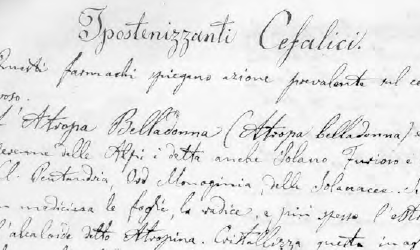 Ipostenizzanti Cefalici.
Questi farmachi spiegano azione prevalente sul ce
roso.
L' Atropa Belladonna (Atropa belladonna)
perenne delle Alpi i detta anche Solano Furioso e
Cl. Pentandria Ord Monoginia, delle Solanacee.
In medicina le foglie, la radice, e più spesso l'estr
l'alcaloide detto Atropina. Cristallizza questa in